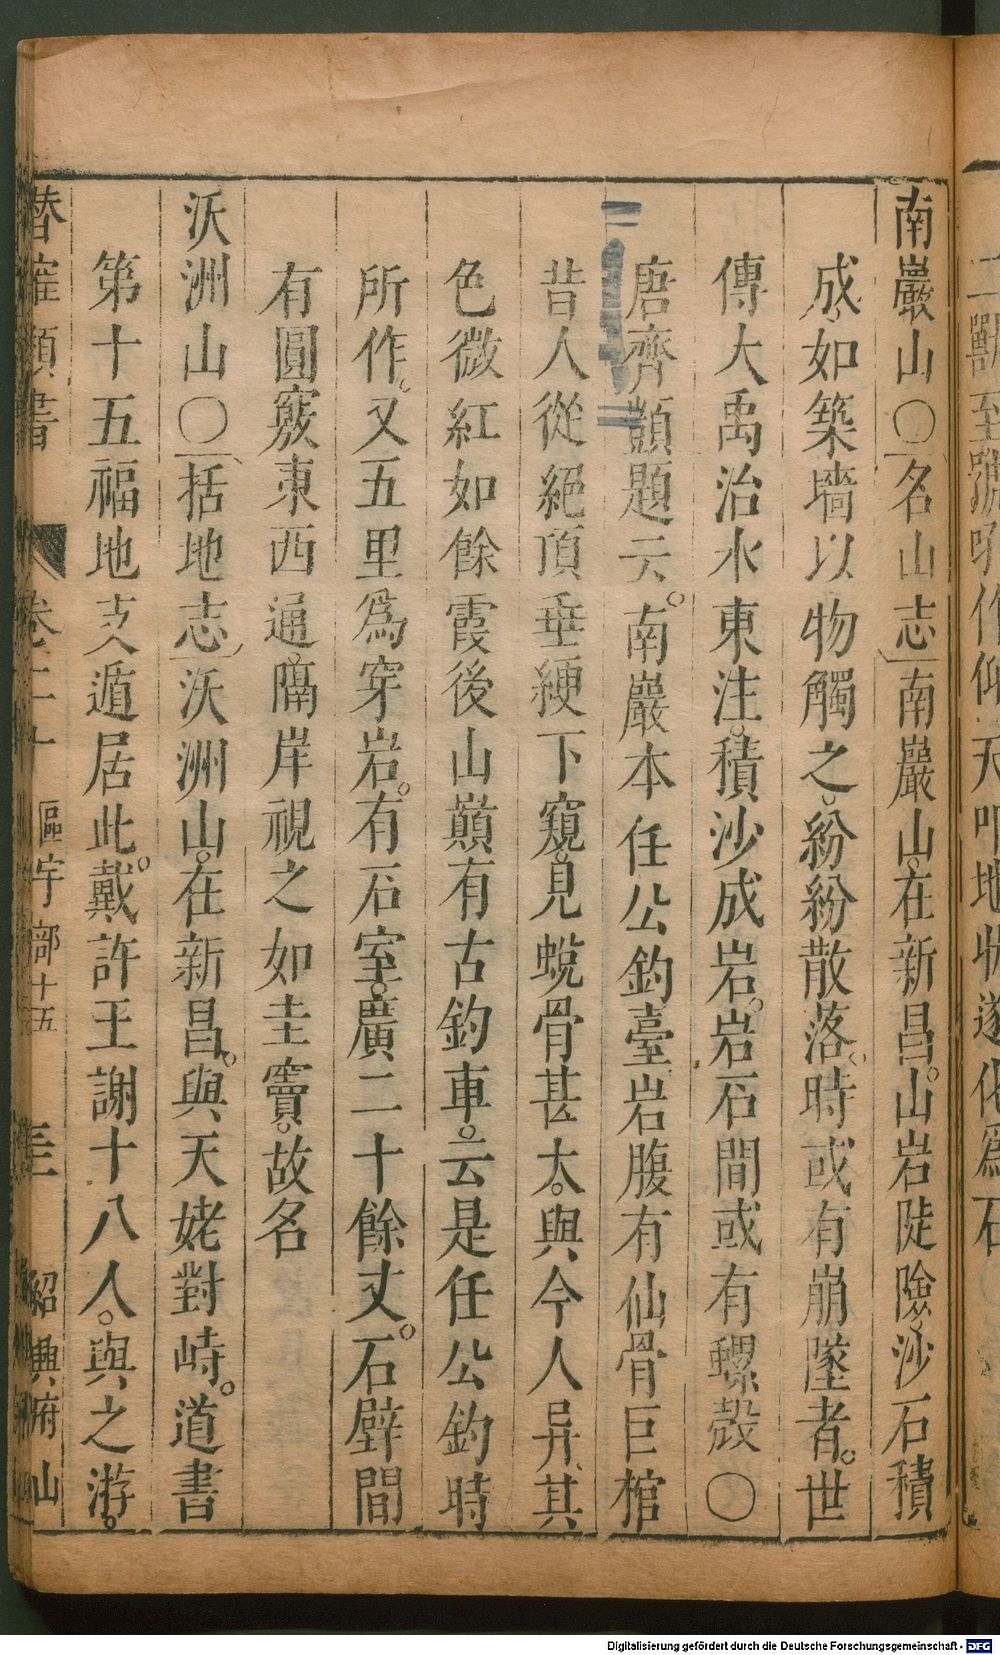 南巖山〇名山志南巖山在新昌山岩陡險沙石積
成如築墻以物觸之紛紛散落時或有崩墜者世
傳大禹治水東注積沙成岩岩石間或有螺殼〇
唐齊顗題云南巖本任公釣臺岩腹有仙骨巨棺
昔人從絕頂垂綆下窺見蛻骨甚大與今人异其
色微紅如餘霞後山巔有古釣車云是任公釣時
所作又五里爲穿岩有石室廣二十餘丈石壁間
有圓竅東西通隔岸視之如圭竇故名
沃洲山〇括地志沃洲山在新昌與天姥對峙道書
第十五福地支遁居此戴許王謝十八人與之游
潛確類書 卷二十 區宇部十五 三 紹興府山
二獸至 作仰天叩地狀遂化爲石
Digitalisierung gefördert durch die Deutsche Forschungsgemeinschaft - DFG